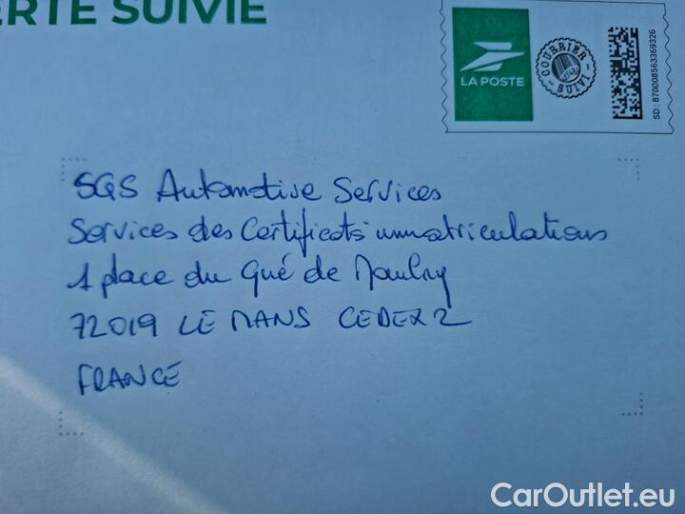 ERTE SUIVIE
LA POSTE
COURRIER
SUIVI
SD: 87000856336932G
SGS Automotive Services
Services des Certificats immatriculations
1 place du Gué de Maulny
72019 LE MANS CEDEX 2
FRANCE
CarOutlet.eu